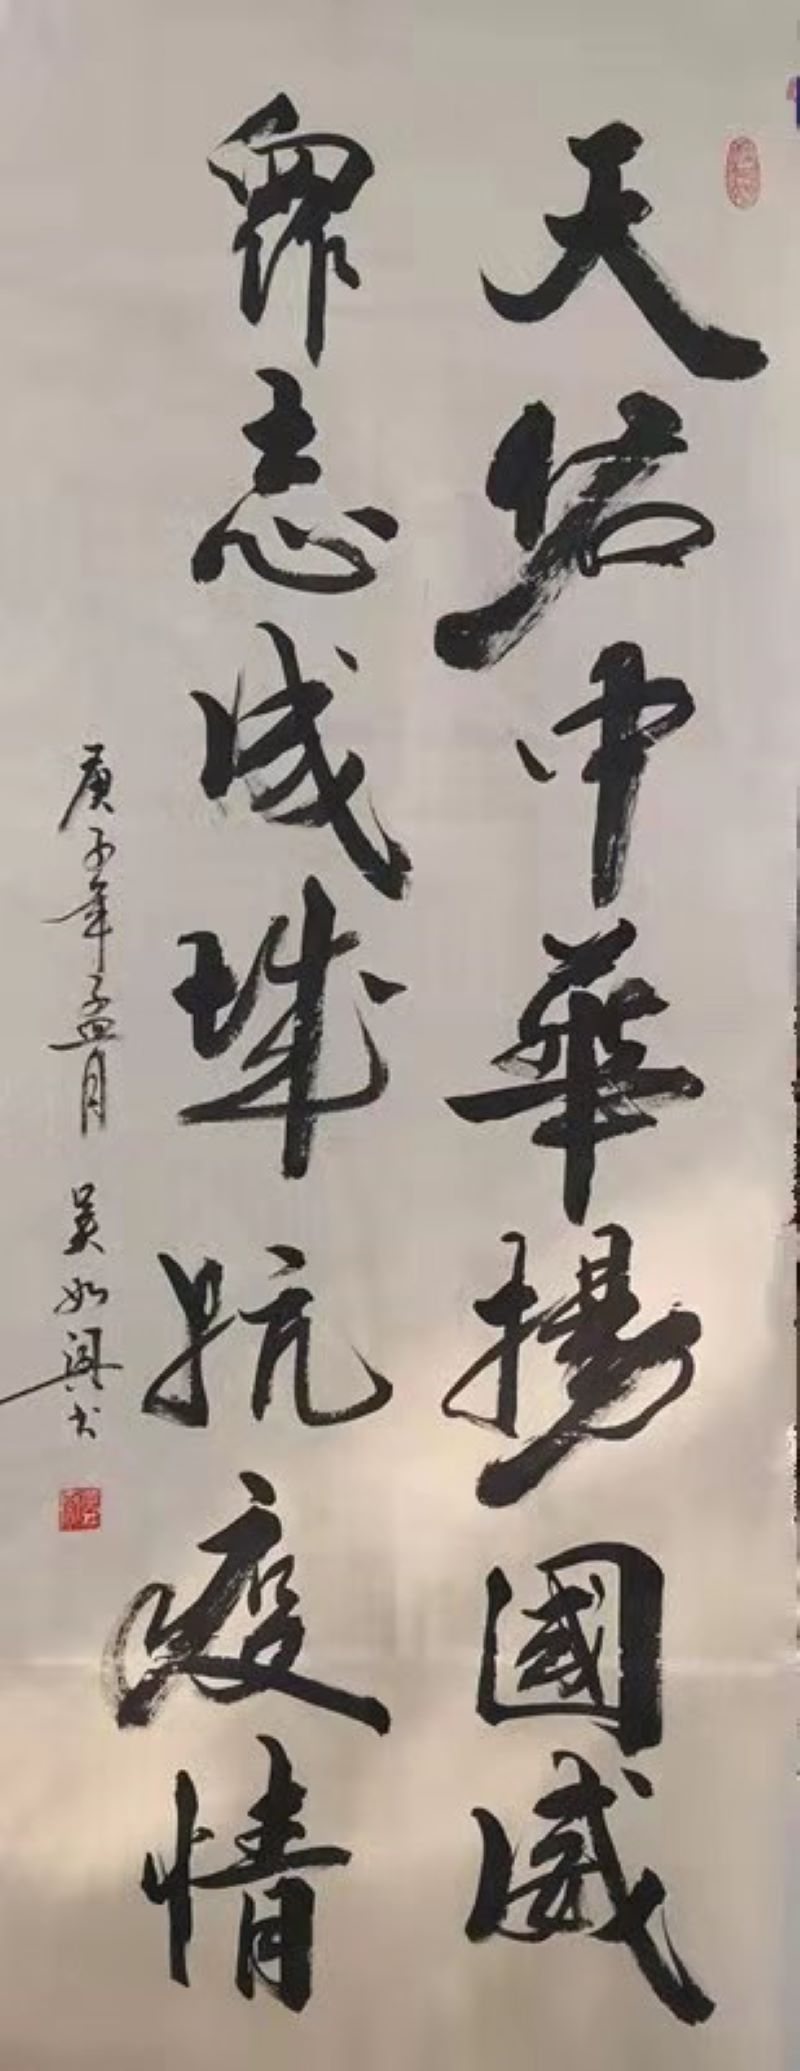 天佑中華揚國威
眾志成城抗疫情
庚子年孟月 吴如興书